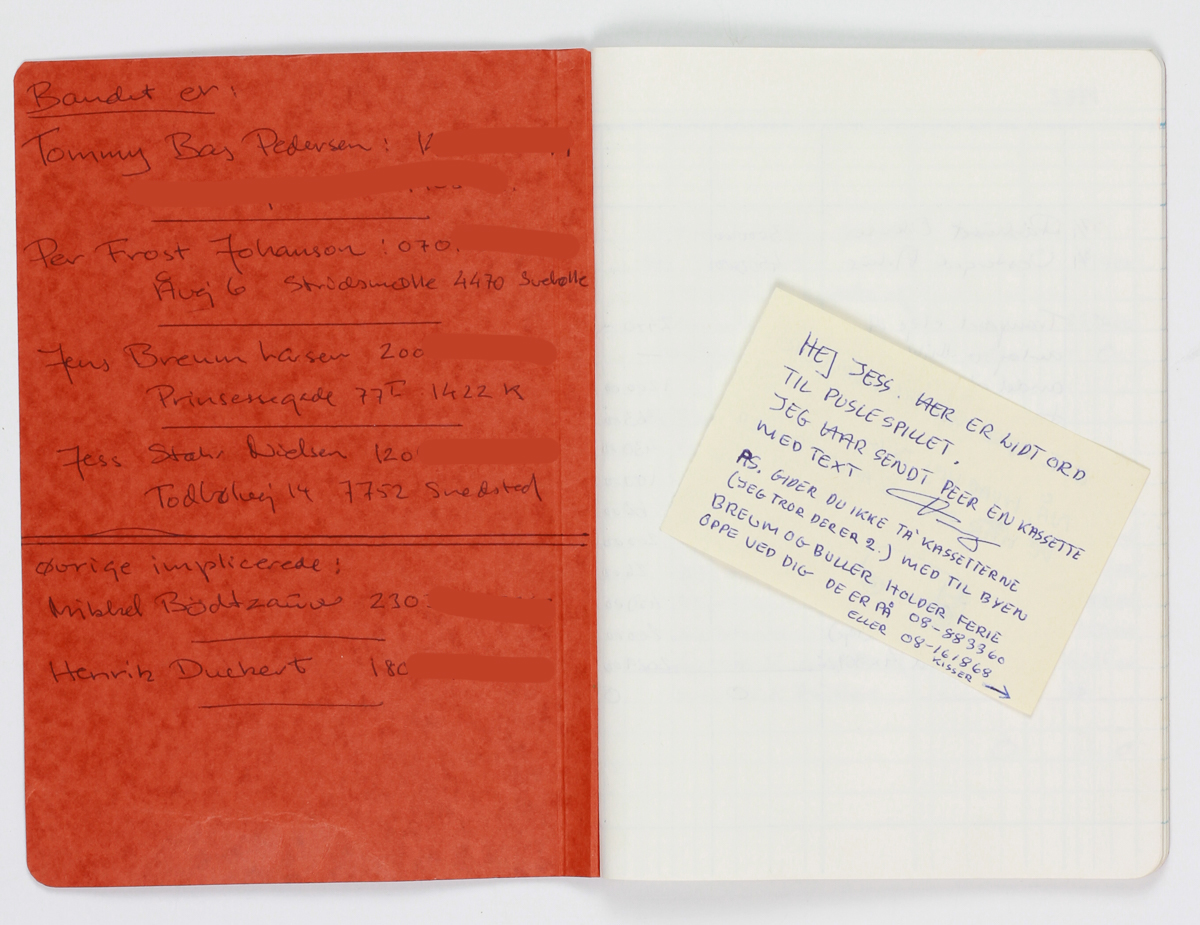 Bandet er:
Tommy Bas Pedersen:
Per Frost Johanson: 070.
Åvej 6 Stridsmølle 4470 Svebølle
Jens Breum Larsen 200
Prinsessegade 77 1422 K
Jess Stæhr Nielsen 120
Todbølvej 14 7752 Snedsted
øvrige implicerede:
Mikkel 230
Henrik Duckert 180
HEJ JESS. HER ER LIDT ORD
TIL PUSLESPILLET.
JEG HAR SENDT PEER EN KASSETTE
MED TEXT
PS. GIDER DU IKKE TA' KASSETTERNE
(JEG TROR DER ER 2.) MED TIL BYEN
BREUM OG BULLER HOLDER FERIE
OPPE VED DIG DE ER PÅ 08-883360
ELLER 08-161868
KISSER →